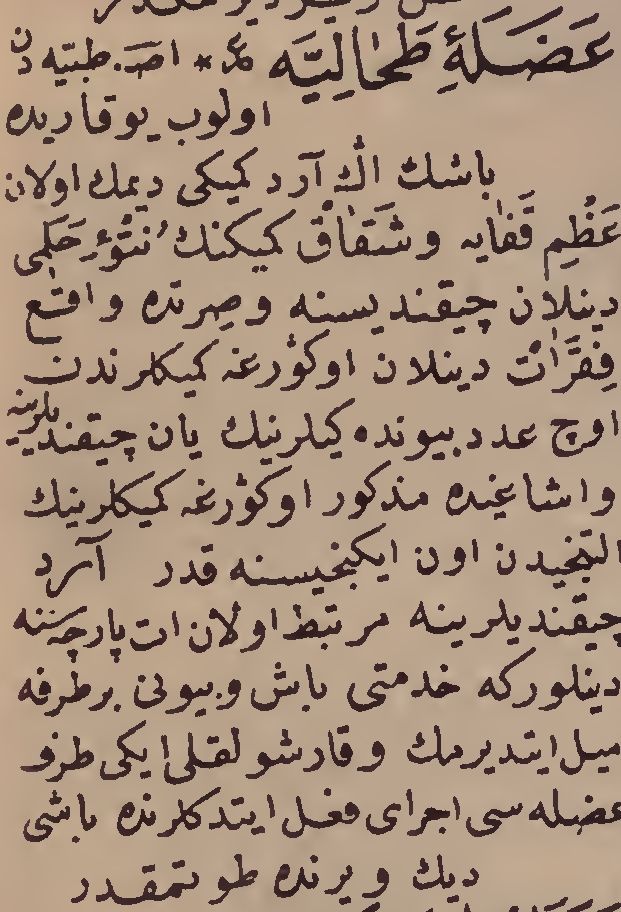 عَضَلَۀِ طَحَالِيَّه ع * اصـ. طبيه دن
اولوب يوقاريده
باشك اڭ آرد كميكى ديمك اولان
عَظْمِ قَفَايه و شَقَاق كميكنك نُتُوءِ حَلَمِى
دينلان چيقنديسنه و صرتده واقع
فِقَرَات دينلان اوكورغه كميكلرندن
اوچ عدد بيونده كيلرنيك يان چيقنديلرينه
و اشاغيده مذكور اوكورغه كميكلرنيك
التيجيدن اون ايكنجيسنه قدر آرد
چيقنديلرينه مرتبط اولان ات پارچه سننه
دينلوركه خدمتى باش و بيونى بر طرفه
ميل ايتديرمك و قارشولقلى ايكى طرف
عضله سى اجراى فعل ايتدكلرنده باشى
ديك و يرنده طوتمقدر